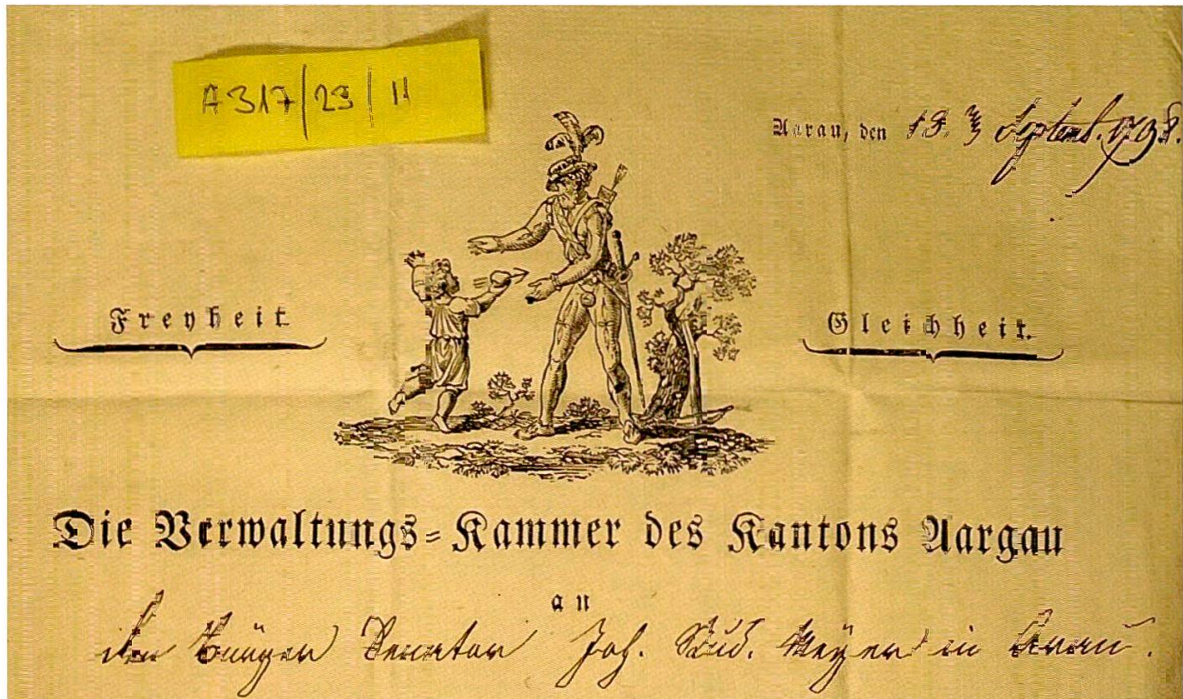 A 317/23/11
Aarau, den 13. 7. Septemb. 1798.
Freyheit
Gleichheit.
Die Verwaltungs-Kammer des Kantons Aargau
an
den Bürger Senator Joh. Rud. Meyer in Arau.